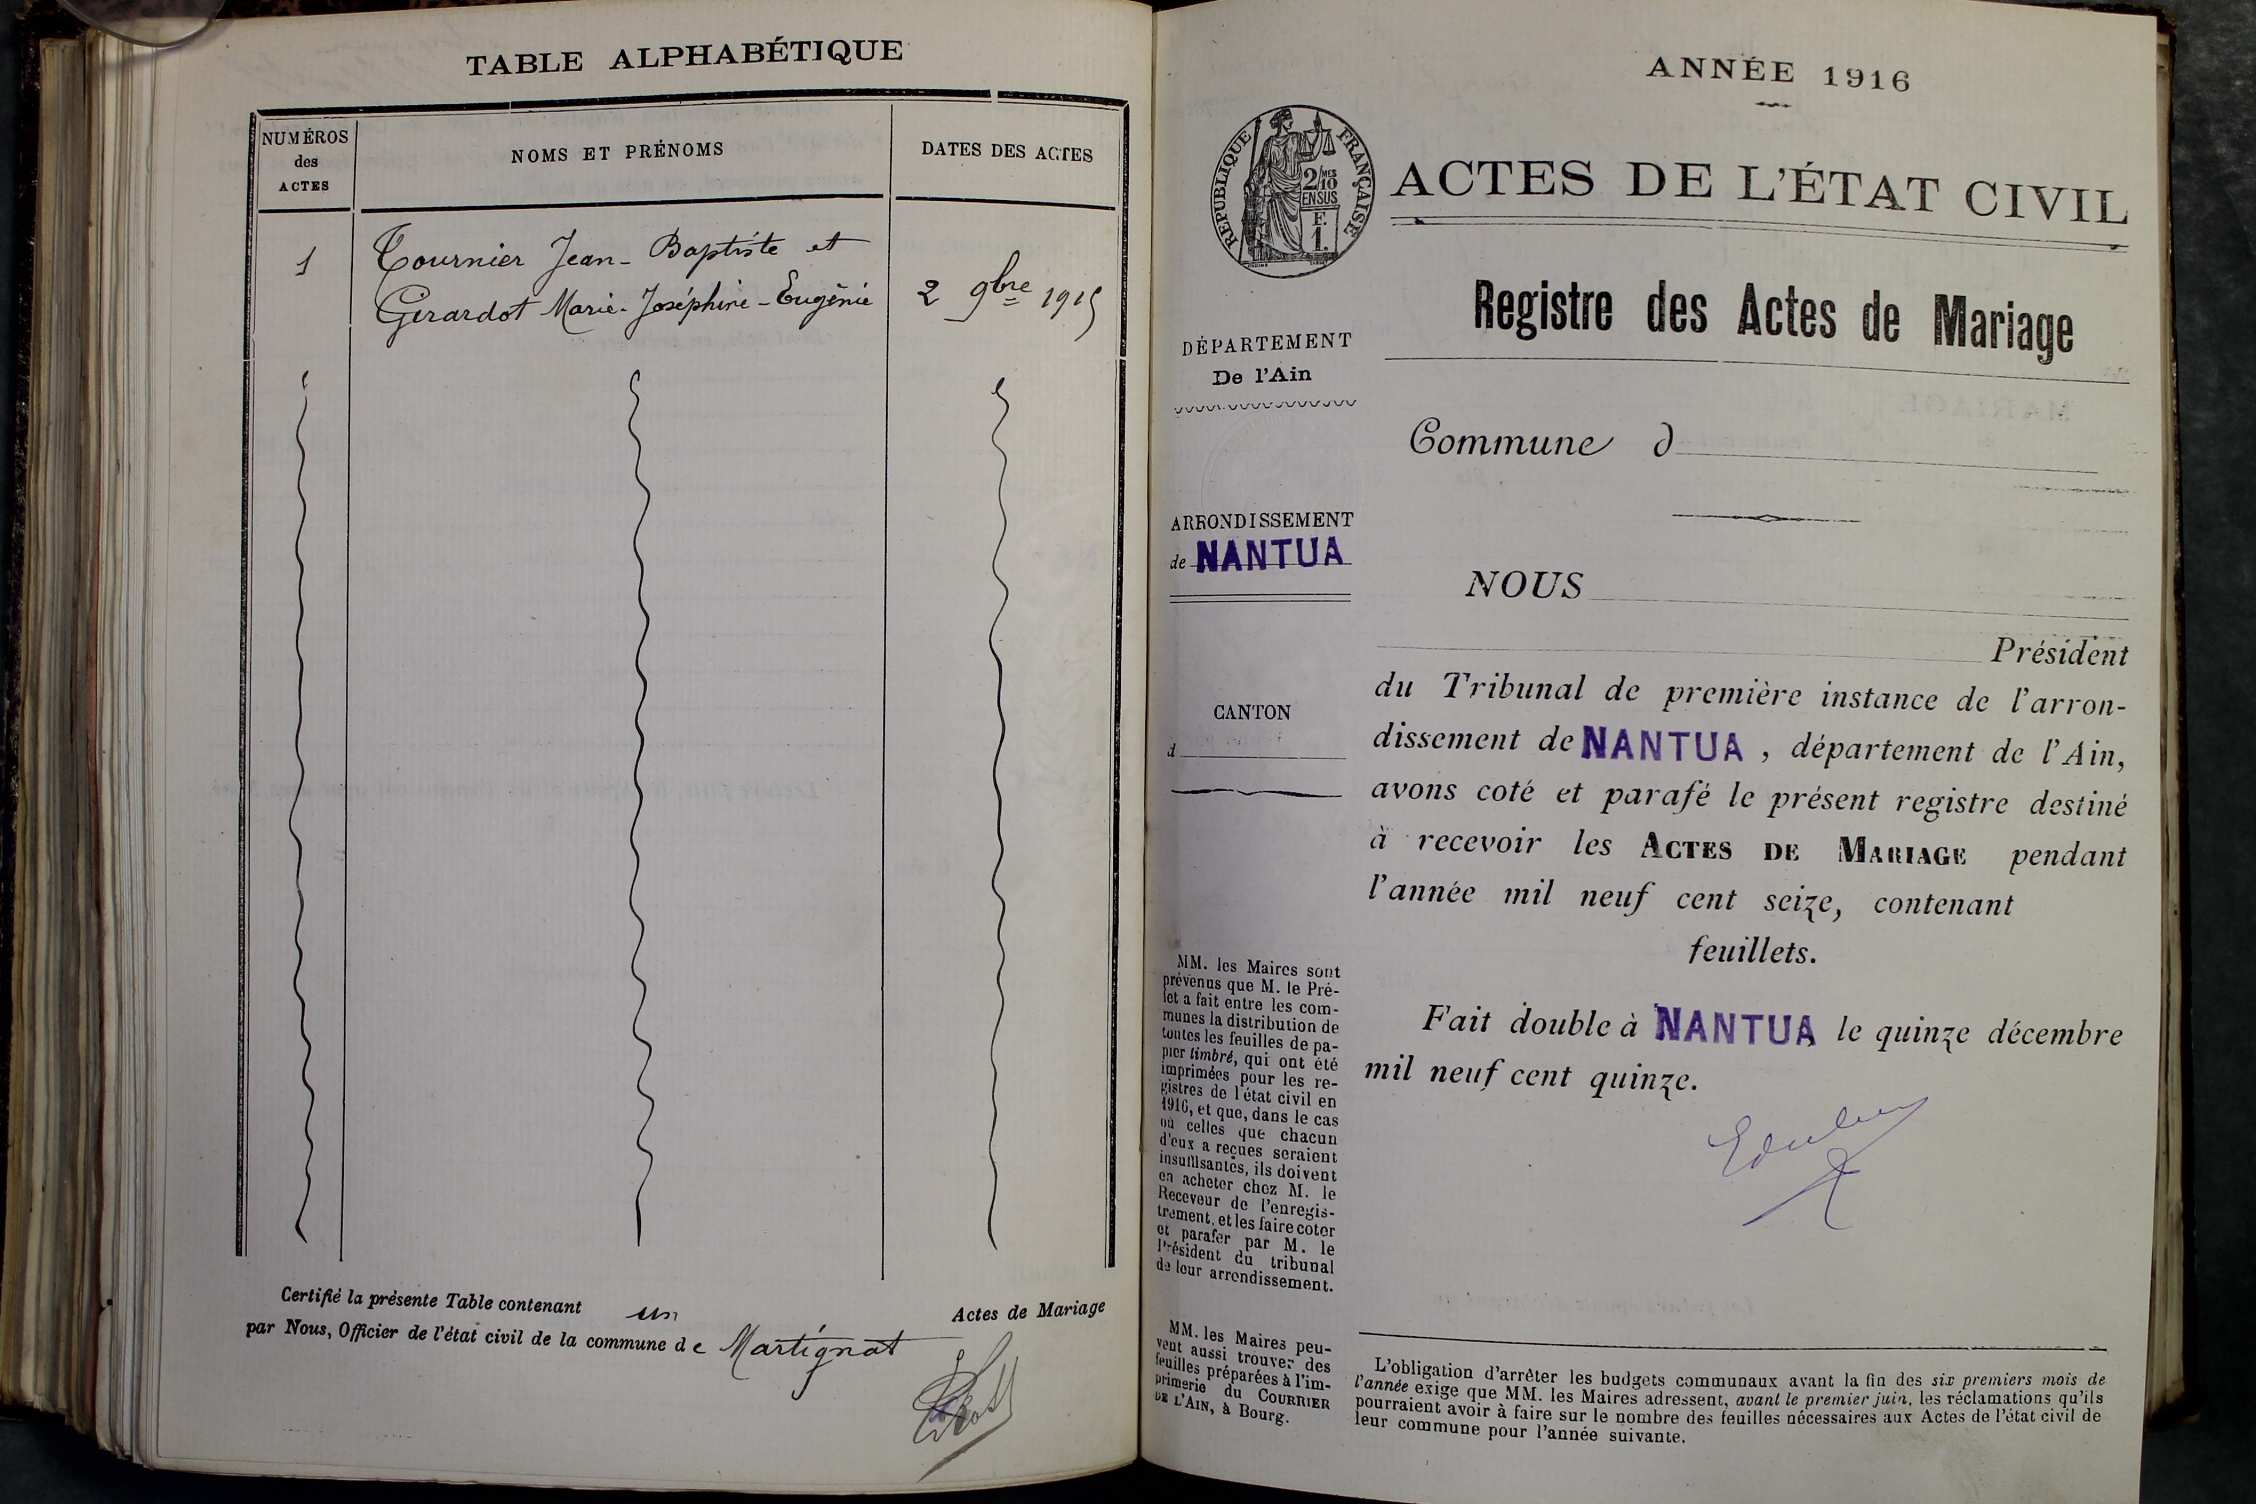 TABLE ALPHABÉTIQUE
NUMÉROS
des
ACTES
NOMS ET PRÉNOMS
DATES DES ACTES
1
Tournier Jean-Baptiste et
Girardot Marie-Joséphine-Eugénie
2 9bre 1915
Certifié la présente Table contenant un Actes de Mariage
par Nous, Officier de l'état civil de la commune de Martignat
ANNÉE 1916
RÉPUBLIQUE FRANÇAISE
2/10MES
EN SUS
F.
1.
ACTES DE L'ÉTAT CIVIL
Registre des Actes de Mariage
DÉPARTEMENT
De l'Ain
ARRONDISSEMENT
de NANTUA
CANTON
d
MM. les Maires sont
prévenus que M. le Pré-
fet a fait entre les com-
munes la distribution de
toutes les feuilles de pa-
pier timbré, qui ont été
imprimées pour les re-
gistres de l'état civil en
1916, et que, dans le cas
où celles que chacun
d'eux a reçues seraient
insuffisantes, ils doivent
en acheter chez M. le
Receveur de l'enregis-
trement, et les faire coter
et parafer par M. le
Président du tribunal
de leur arrondissement.
MM. les Maires peu-
vent aussi trouver des
feuilles préparées à l'im-
primerie du COURRIER
DE L'AIN, à Bourg.
Commune d
NOUS
Président
du Tribunal de première instance de l'arron-
dissement de NANTUA, département de l'Ain,
avons coté et parafé le présent registre destiné
à recevoir les ACTES DE MARIAGE pendant
l'année mil neuf cent seize, contenant
feuillets.
Fait double à NANTUA le quinze décembre
mil neuf cent quinze.
L'obligation d'arrêter les budgets communaux avant la fin des six premiers mois de
l'année exige que MM. les Maires adressent, avant le premier juin, les réclamations qu'ils
pourraient avoir à faire sur le nombre des feuilles nécessaires aux Actes de l'état civil de
leur commune pour l'année suivante.